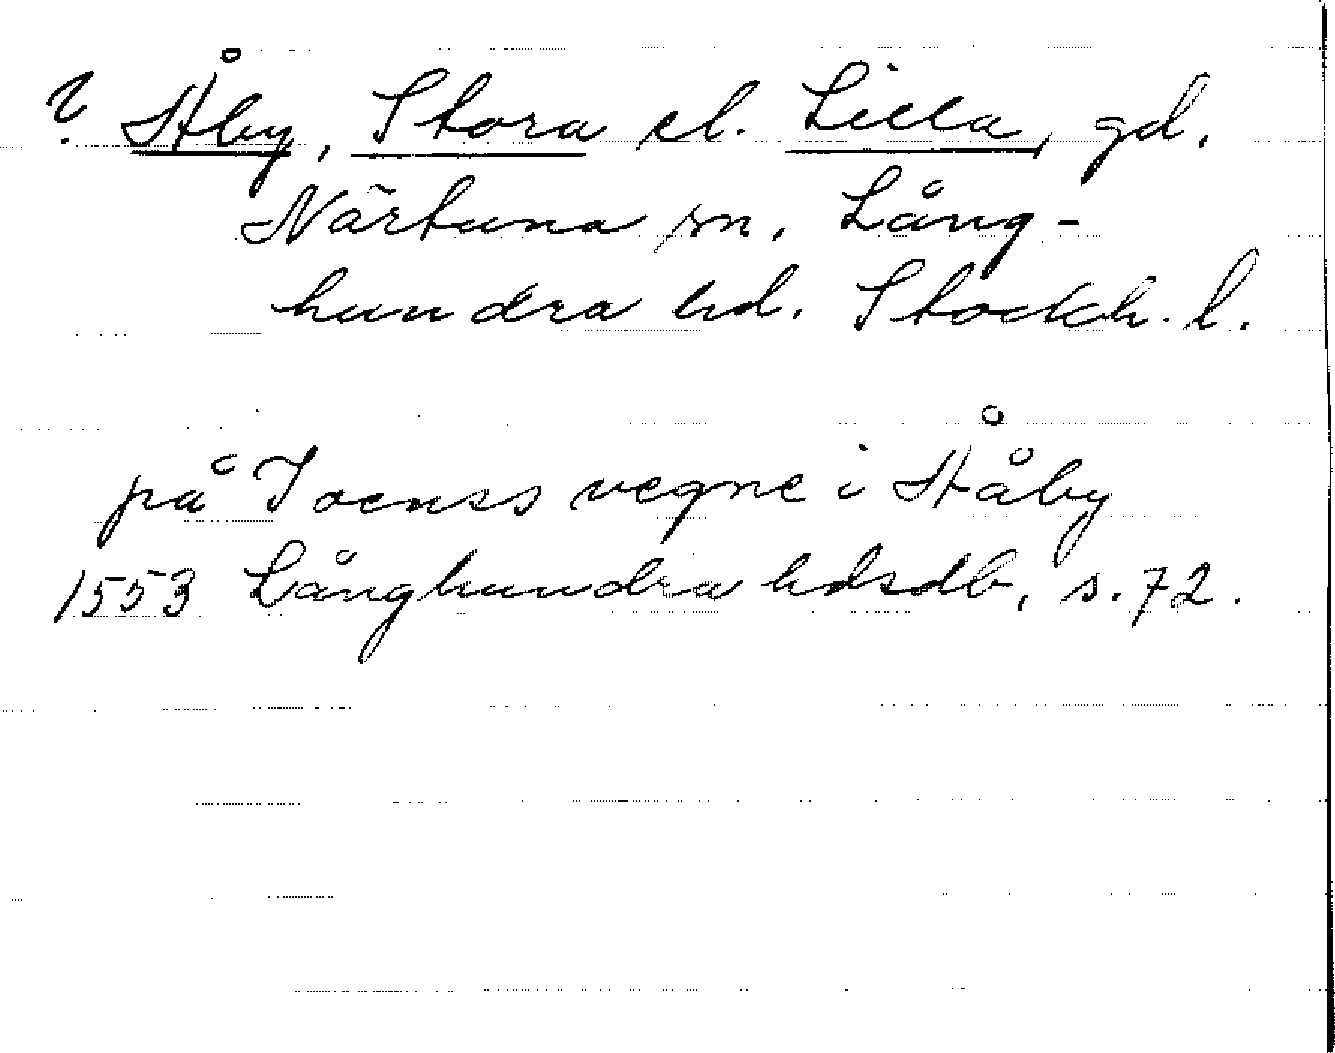 ? Åby, Stora el. Lilla, gd.
Närtuna sn. Lång-
hundra hd. Stockh. l.
på Joenss vegne i Ååby
1553 Långhundra hdsdb, s. 72.